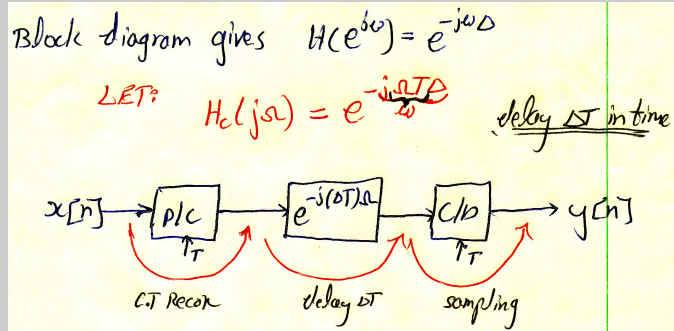 Block diagram gives H(e^{jω}) = e^{-jωΔ}
LET: H_c(jΩ) = e^{-jΩTΔ}
ω
delay ΔT in time
x[n] D/C e^{-j(ΔT)Ω} C/D y[n]
T T
C.T Recon delay ΔT sampling